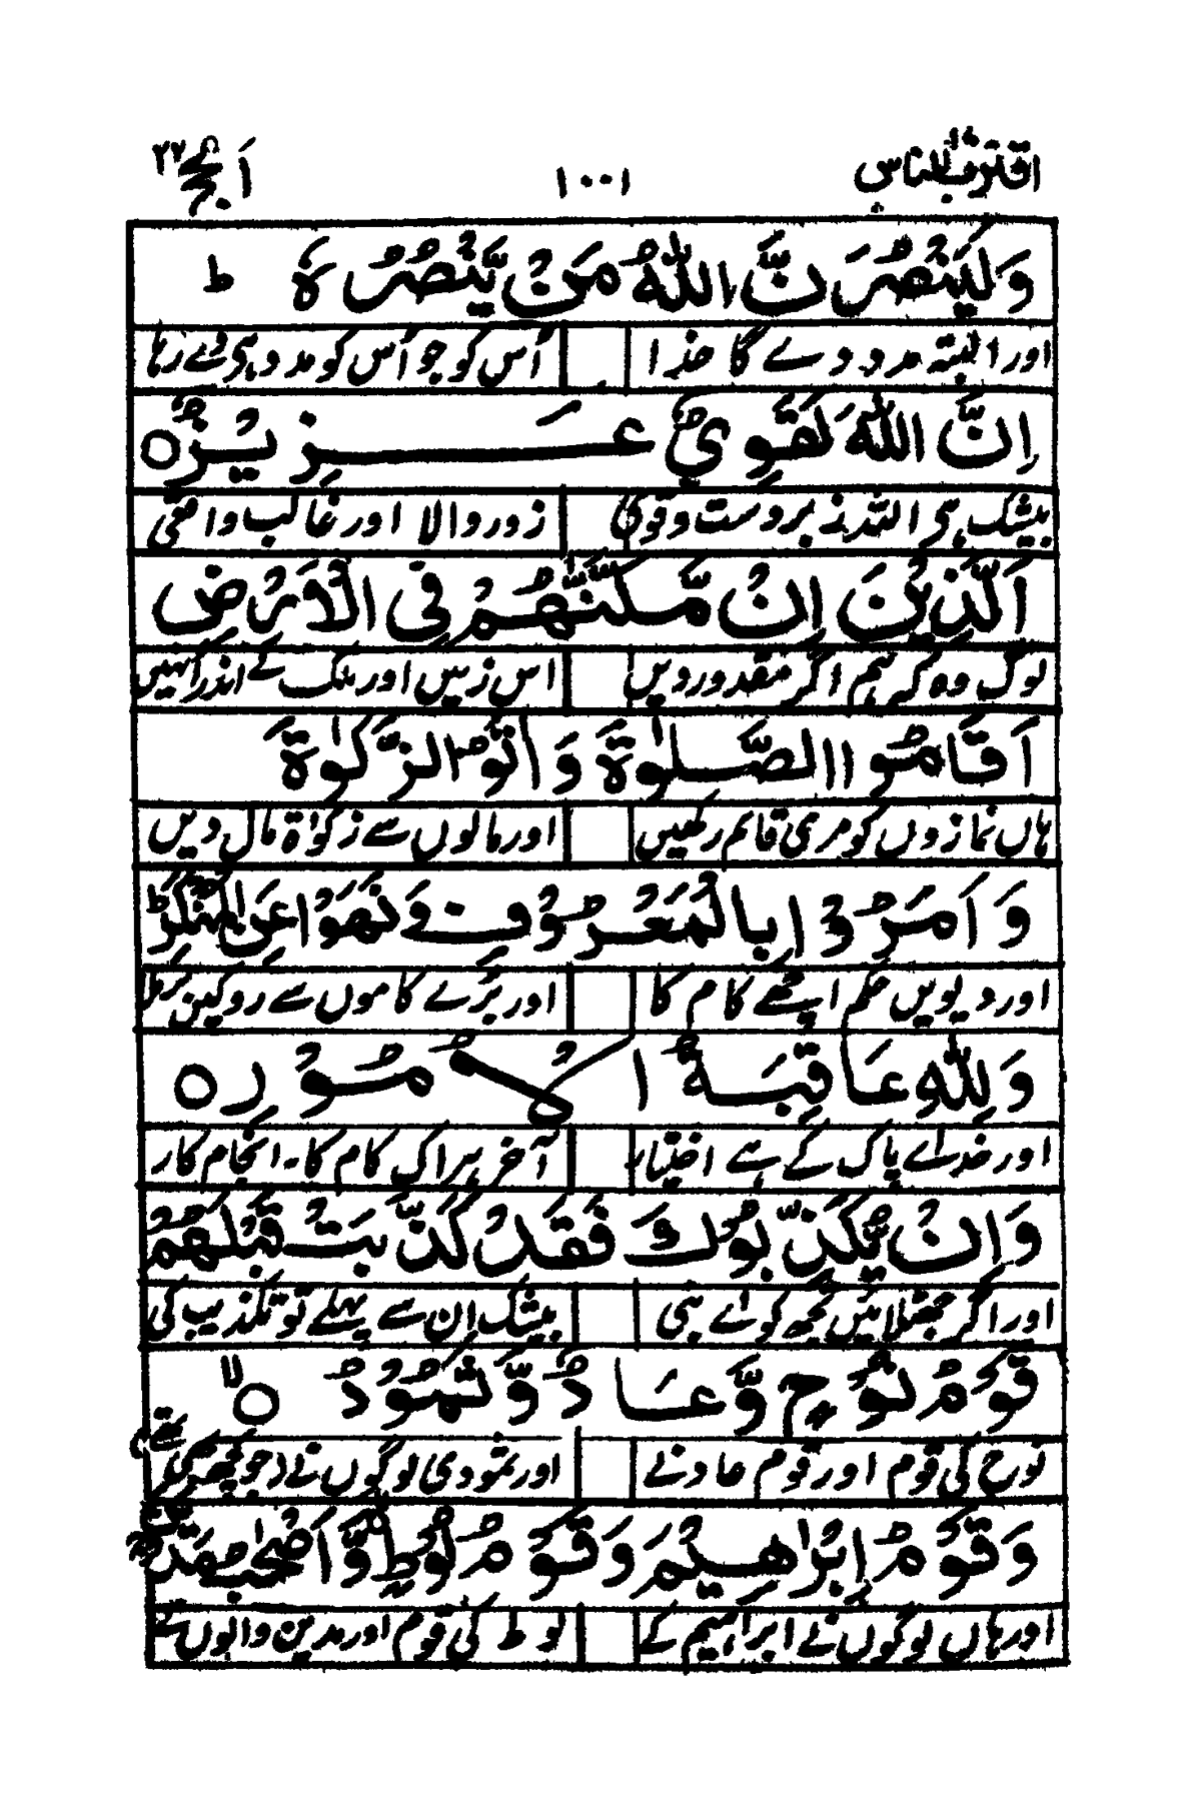 اقترب للناس ۱۷ ۱۰۰۱ اَلحج ۲۲
وَلَيَنْصُرَنَّ اللّٰهُ مَنْ يَّنْصُرُهٗ ط
اور البتہ مدد دے گا خدا اُس کو جو اُس کو مدد ہی دے رہا
اِنَّ اللّٰهَ لَقَوِيٌّ عَزِيْزٌ ○
بیشک ہی اللہ زبردست و قوی زور والا اور غالب واقعی
اَلَّذِيْنَ اِنْ مَّكَّنّٰهُمْ فِي الْاَرْضِ
لوگ وہ کہ ہم اگر مقدور دیں اس زمیں اور ملک کے اندر اُنہیں
اَقَامُوا الصَّلٰوةَ وَ اٰتَوُا الزَّكٰوةَ
ہاں نمازوں کو مری قائم رکھیں اور مالوں سے زکوٰۃ مال دیں
وَ اَمَرُوْا بِالْمَعْرُوْفِ وَ نَهَوْا عَنِ الْمُنْكَرِ ط
اور دیویں حکم اچھے کام کا اور بُرے کاموں سے روکیں
وَلِلّٰهِ عَاقِبَةُ الْاُمُوْرِ ○
اور خدائے پاک کے ہے اختیار آخر ہر اک کام کا۔ انجام کار
وَاِنْ يُّكَذِّبُوْكَ فَقَدْ كَذَّبَتْ قَبْلَهُمْ
اور اگر جھٹلائیں تجھ کو اے نبی بیشک اِن سے پہلے تو تکذیب کی
قَوْمُ نُوْحٍ وَّعَادٌ وَّثَمُوْدُ ○ لا
نوح کی قوم اور قوم عاد نے اور ثمودی لوگوں نے
وَقَوْمُ اِبْرٰهِيْمَ وَقَوْمُ لُوْطٍ ○ وَّاَصْحٰبُ مَدْيَنَ
اور ہاں لوگوں نے ابراہیم کے لوط کی قوم اور مدین والوں نے